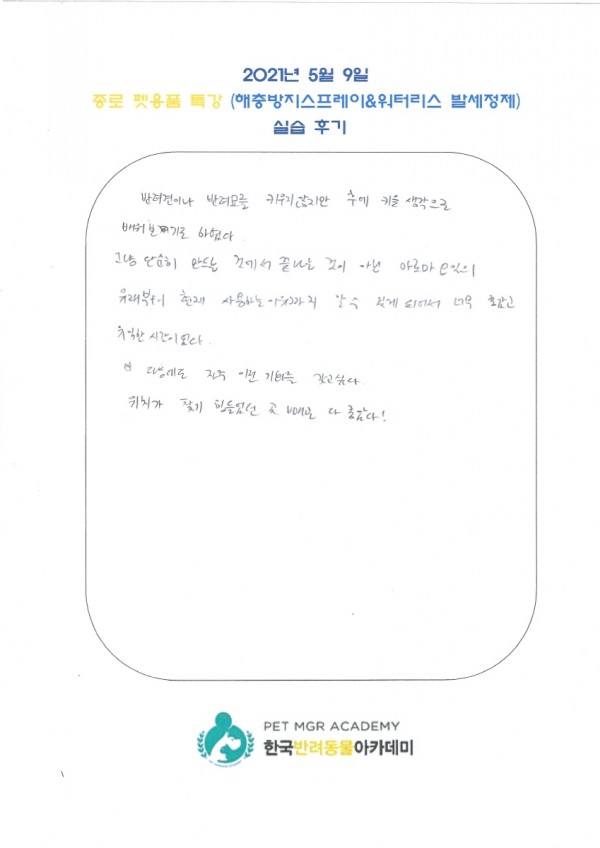 2021년 5월 9일
종로 펫용품 특강 (해충방지스프레이&워터리스 발세정제)
실습 후기
반려견이나 반려묘를 키우지 않지만 후에 키울 생각으로
배워보기로 하였다.
그냥 단순히 만드는 것에서 끝나는 것이 아닌 아로마 오일의
유래부터 현재 사용하는 이유까지 알 수 있게 되어서 너무 좋았고
유익한 시간이었다.
다음에도 자주 이런 기회를 갖고싶다.
위치가 찾기 힘들었던 것 빼곤 다 좋았다!
PET MGR ACADEMY
한국반려동물아카데미